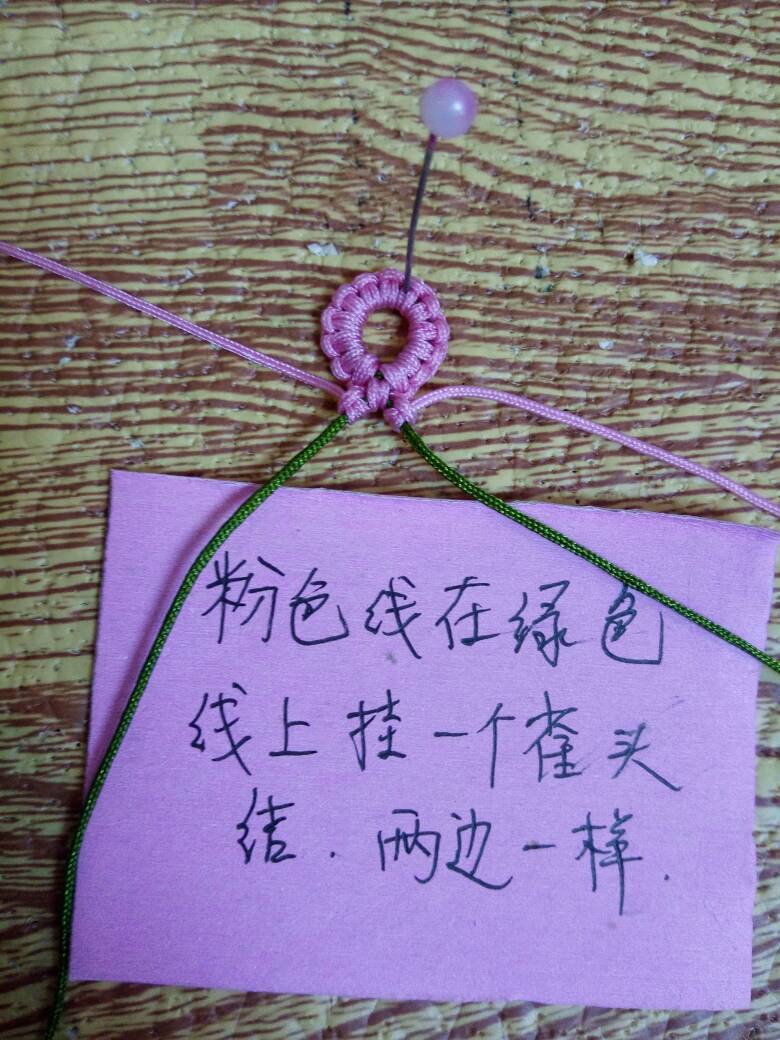 粉色线在绿色
线上挂一个雀头
结.两边一样.